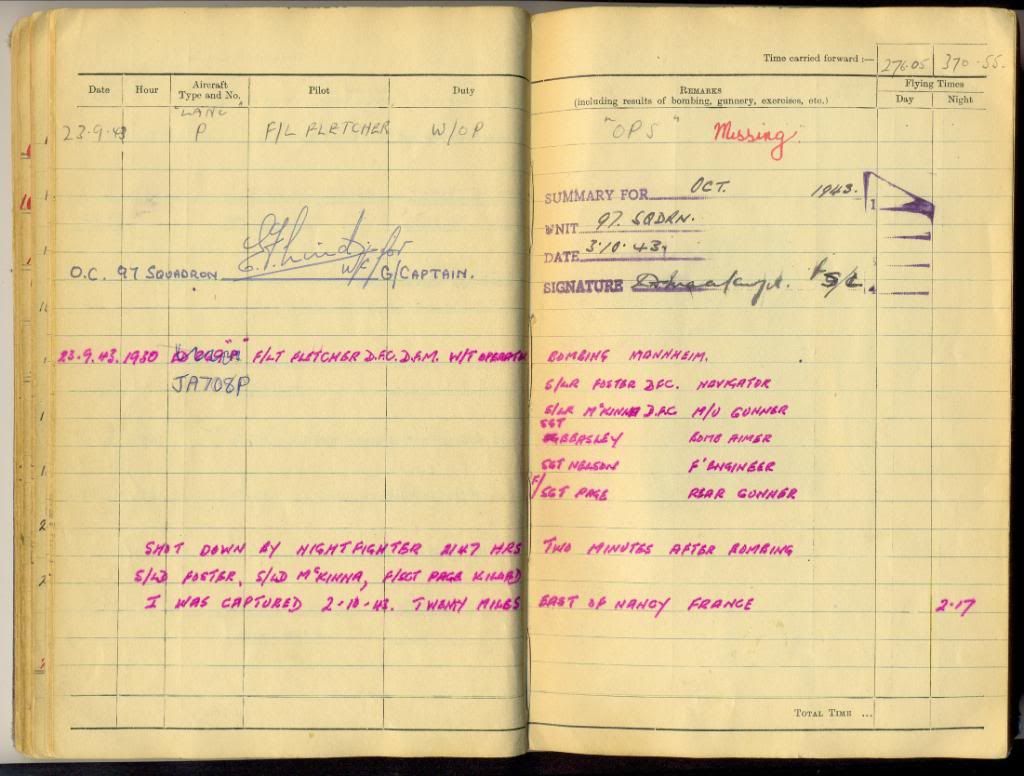 Time carried forward :— 276.05 370.55.
Date Hour Aircraft Type and No. Pilot Duty REMARKS (including results of bombing, gunnery, exercises, etc.) Flying Times Day Night
"LANC"
23.9.43 P F/L FLETCHER W/OP "OPS" Missing
SUMMARY FOR OCT. 1943. 1
UNIT 97. SQDRN.
DATE 3.10.43.
O.C. 97 SQUADRON for W/C/G/CAPTAIN.
SIGNATURE
23.9.43. 1930 "P" F/LT FLETCHER D.F.C. D.F.M. W/T OPERATOR BOMBING MANNHEIM.
JA708P S/LR FOSTER DFC. NAVIGATOR
S/LR McKINNA D.F.C M/U GUNNER
SGT BEASLEY BOMB AIMER
SGT NELSON F'ENGINEER
F/SGT PAGE REAR GUNNER
SHOT DOWN BY NIGHTFIGHTER 2147 HRS TWO MINUTES AFTER BOMBING
S/LD FOSTER, S/LD McKINNA, F/SGT PAGE KILLED
I WAS CAPTURED 2-10-43. TWENTY MILES EAST OF NANCY FRANCE 2.17
TOTAL TIME ...